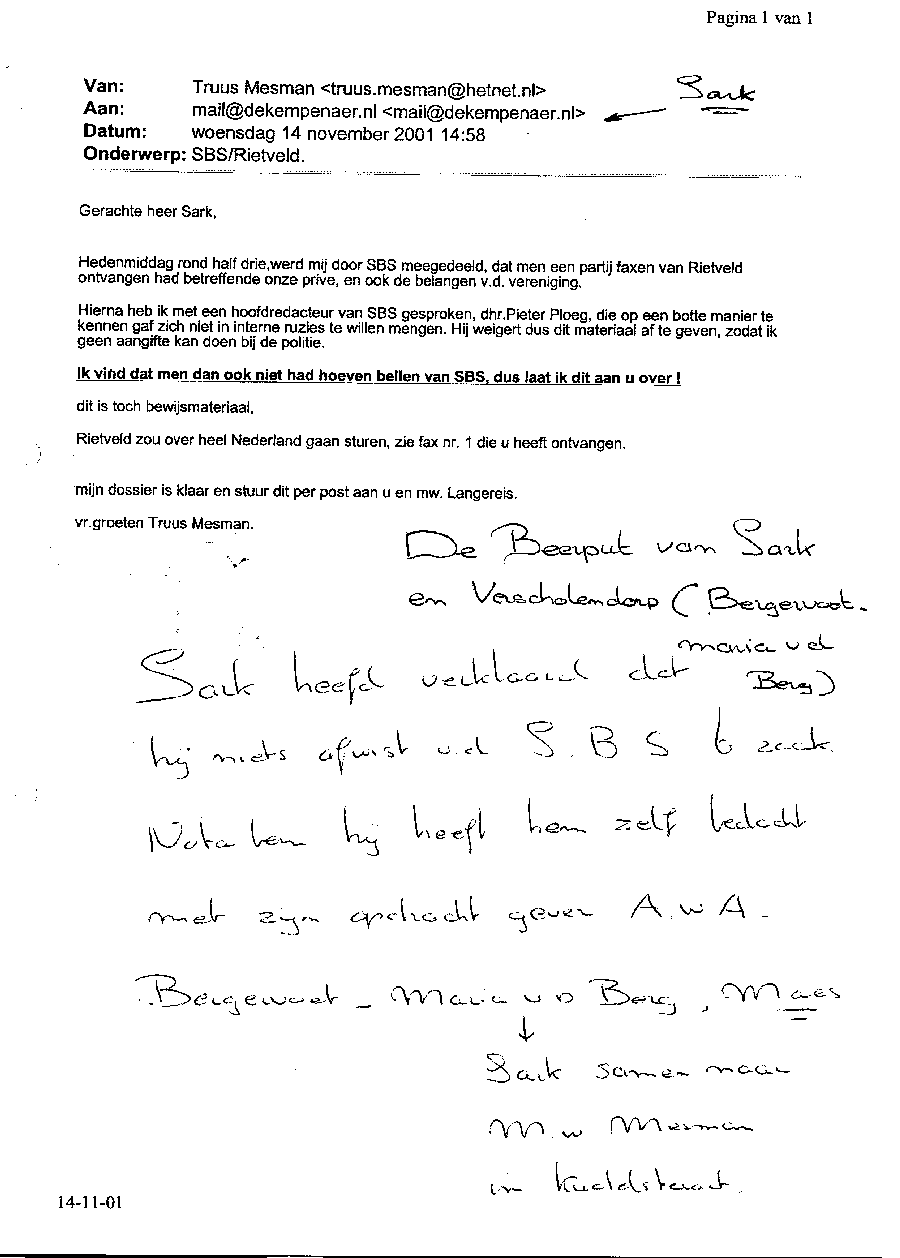 Pagina 1 van 1
Van: Truus Mesman <truus.mesman@hetnet.nl>
Sark
Aan: mail@dekempenaer.nl <mail@dekempenaer.nl>
Datum: woensdag 14 november 2001 14:58
Onderwerp: SBS/Rietveld.
Gerachte heer Sark,
Hedenmiddag rond half drie,werd mij door SBS meegedeeld, dat men een partij faxen van Rietveld
ontvangen had betreffende onze prive, en ook de belangen v.d. vereniging.
Hierna heb ik met een hoofdredacteur van SBS gesproken, dhr.Pieter Ploeg, die op een botte manier te
kennen gaf zich niet in interne ruzies te willen mengen. Hij weigert dus dit materiaal af te geven, zodat ik
geen aangifte kan doen bij de politie.
Ik vind dat men dan ook niet had hoeven bellen van SBS, dus laat ik dit aan u over !
dit is toch bewijsmateriaal,
Rietveld zou over heel Nederland gaan sturen, zie fax nr. 1 die u heeft ontvangen.
mijn dossier is klaar en stuur dit per post aan u en mw. Langereis.
vr.groeten Truus Mesman.
De Beerput van Sark
en Verscholendorp ( Bergewoet -
maria v d
Berg )
Sark heefd verklaard dat
hij niets afwist v.d S.B S 6 zaak
Nota ben hij heeft hem zelf bedacht
met zijn opdracht gever A.w A -
Bergewoet - Maria v D Berg , Maes
Sark samen naar
M.w Mesman
in
14-11-01